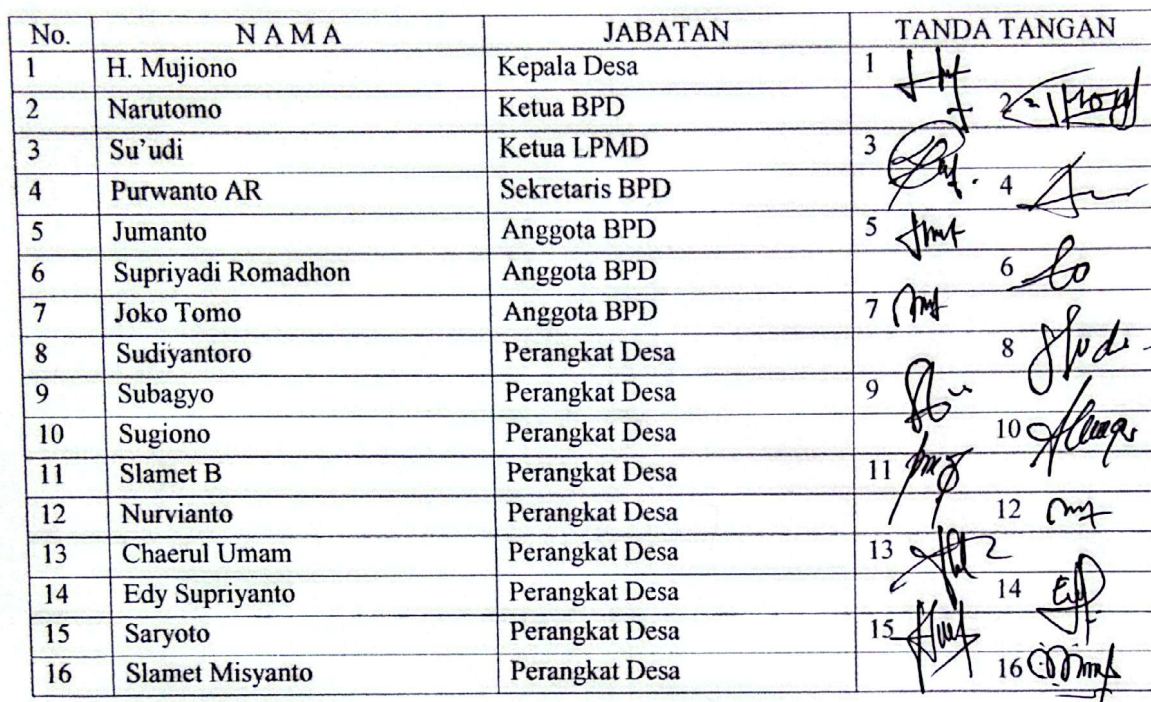 No. N A M A JABATAN TANDA TANGAN
1 H. Mujiono Kepala Desa 1
2 Narutomo Ketua BPD 2
3 Su'udi Ketua LPMD 3
4 Purwanto AR Sekretaris BPD 4
5 Jumanto Anggota BPD 5
6 Supriyadi Romadhon Anggota BPD 6
7 Joko Tomo Anggota BPD 7
8 Sudiyantoro Perangkat Desa 8
9 Subagyo Perangkat Desa 9
10 Sugiono Perangkat Desa 10
11 Slamet B Perangkat Desa 11
12 Nurvianto Perangkat Desa 12
13 Chaerul Umam Perangkat Desa 13
14 Edy Supriyanto Perangkat Desa 14
15 Saryoto Perangkat Desa 15
16 Slamet Misyanto Perangkat Desa 16